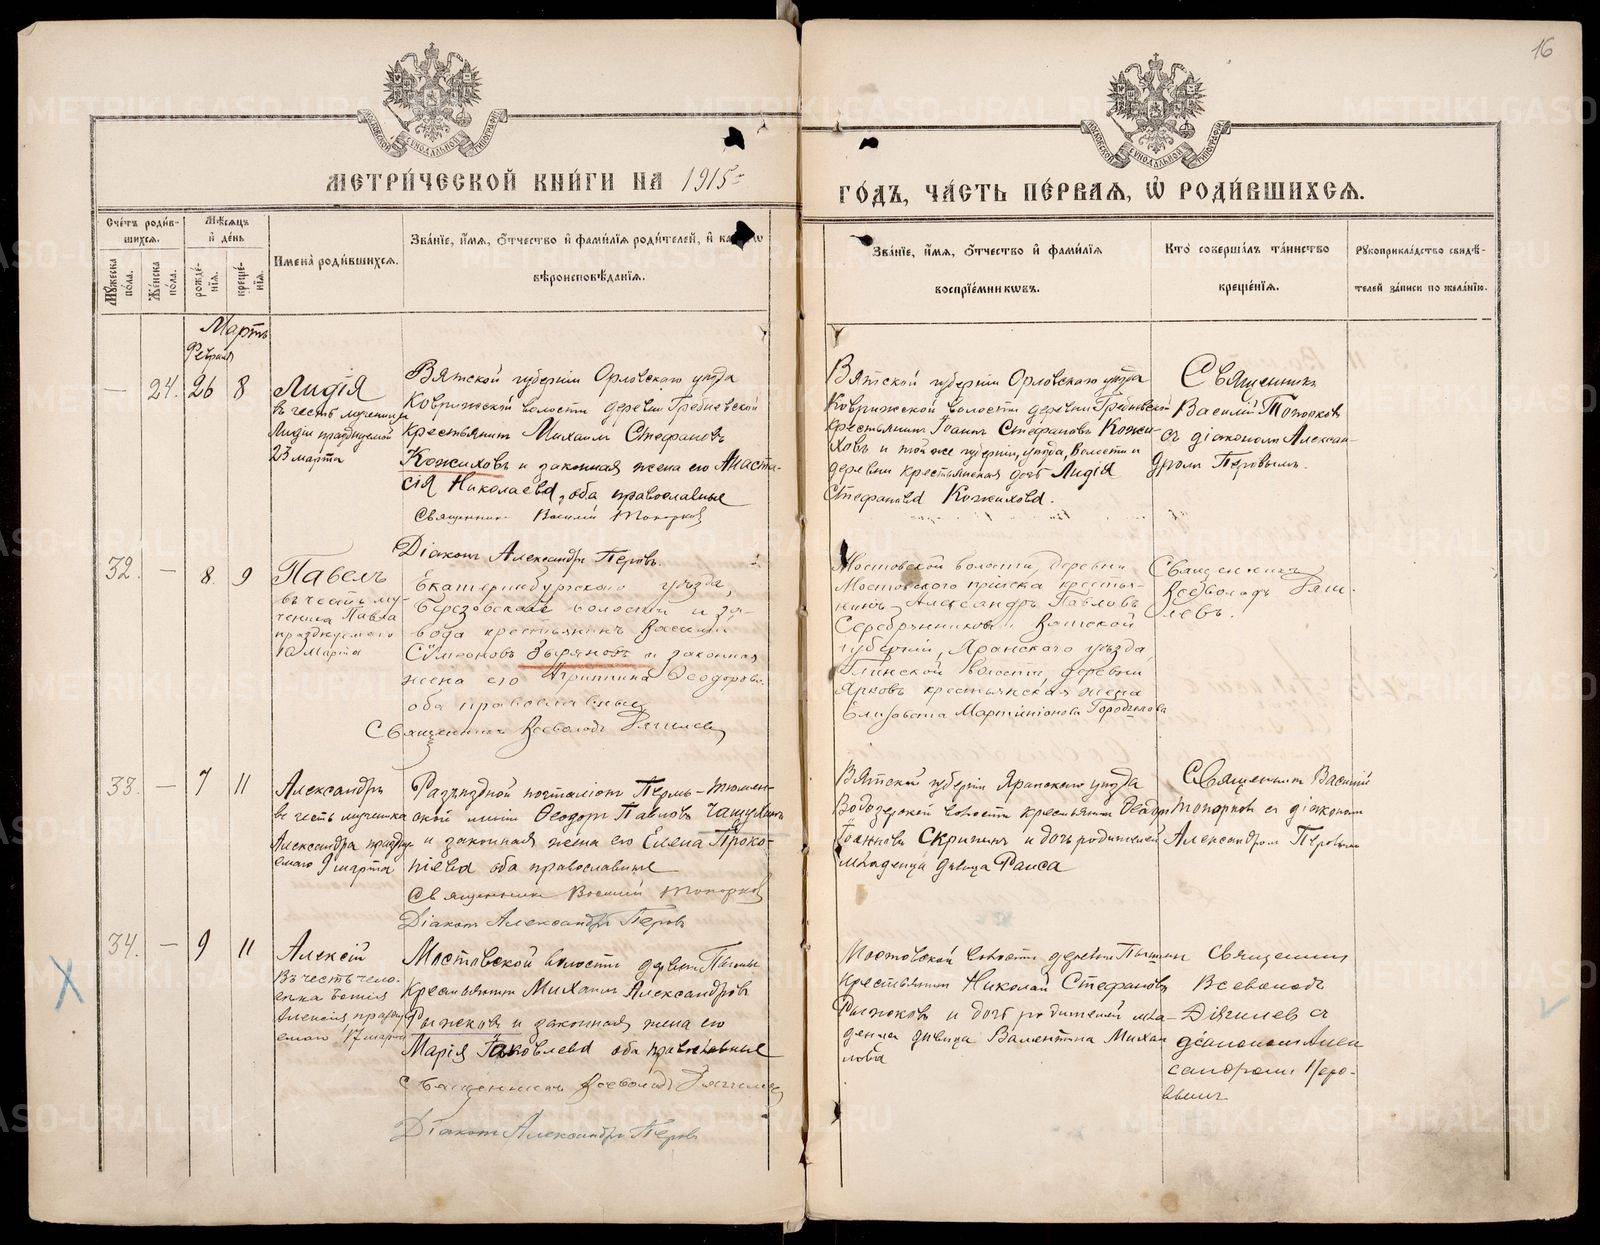 16
МЕТРИ́ЧЕСКОЙ КНИ́ГИ НА 1915
ГО́ДЪ, ЧА́СТЬ ПЕ́РВАЯ, Ѡ҆ РОДИ́ВШИХСЯ.
Сче́тъ роди́в-
шихся.
Мѣ́сяцъ
и҆ де́нь
Мꙋ́жеска по́ла.
Же́нска по́ла.
рожде́нїя.
креще́нїя.
И҆мена̀ роди́вшихся.
Зва́нїе, и҆́мя, ѻ҆́тчество и҆ фами́лїя роди́телей, и҆
вѣроисповѣ́данїя.
Зва́нїе, и҆́мя, ѻ҆́тчество и҆ фами́лїя
воспрїе́мникѡвъ.
Кто̀ соверша́лъ та́инство
креще́нїя.
Рꙋкоприкла́дство свидѣ́-
телей за́писи по жела́нїю.
Мартъ
Февраля
— 24. 26 8
Лидія
въ честь мученицы
Лидіи празднуемой
23 марта
Вятской губерніи Орловскаго уѣзда
Коврижской волости деревни Гребневской
крестьянинъ Михаилъ Стефановъ
Кожиховъ и законная жена его Анаста-
сія Николаева, оба православные
Священникъ Василій Топорковъ
Діаконъ Александръ Перовъ.
Вятской губерніи Орловскаго уѣзда
Коврижской волости деревни Гребневской
крестьянинъ Іоаннъ Стефановъ Кожи-
ховъ и той же губерніи, уѣзда, волости и
деревни крестьянская дочь Лидія
Стефанова Кожихова.
Священникъ
Василій Топорковъ
съ діакономъ Алексан-
дромъ Перовымъ.
32. — 8. 9
Павелъ
въ честь му-
ченика Павла
празднуемаго
10 Марта
Екатеринбургскаго уѣзда,
Березовской волости и за-
вода крестьянинъ Василій
Сѵмеоновъ Зыряновъ и законная
жена его Агриппина Ѳеодорова.
оба православные
Священникъ Всеволодъ
Мостовской волости, деревни
Мостовского прійска крестья-
нинъ Александръ Павловъ
Серебрянниковъ и Вятской
губерніи, Яранскаго уѣзда,
волости, деревни
крестьянская жена
Елизавета Мартиніонова
Священникъ
Всеволодъ
33. — 7 11
Александръ
въ честь мученика
Александра праздну-
емаго 9 марта
Разъѣздной почталіонъ Пермь-Тюмен-
ской линіи Ѳеодоръ Павловъ
и законная жена его Елена Проко-
піева оба православные
Священникъ Василій Топорковъ
Діаконъ Александръ Перовъ
Вятской губерніи Яранскаго уѣзда
волости крестьянинъ Ѳеодоръ
Іоанновъ Скрипинъ и дочь родителей
младенца дѣвица Раиса
Священникъ Василій
Топорковъ съ діакономъ
Александромъ Перовымъ
34. — 9 11
Алексій
Въ честь чело-
вѣка Божія
Алексія праздну-
емаго 17 марта
Мостовской волости деревни Пышмы
крестьянинъ Михаилъ Александровъ
Рыжковъ и законная жена его
Марія Іаковлева оба православные
Священникъ Всеволодъ
Діаконъ Александръ Перовъ
Мостовской волости деревни Пышмы
крестьянинъ Николай Стефановъ
Рыжковъ и дочь родителей мла-
денца дѣвица Валентина Михаи
лова
Священникъ
Всеволодъ
съ
діакономъ Алек
сандромъ Перо-
вымъ